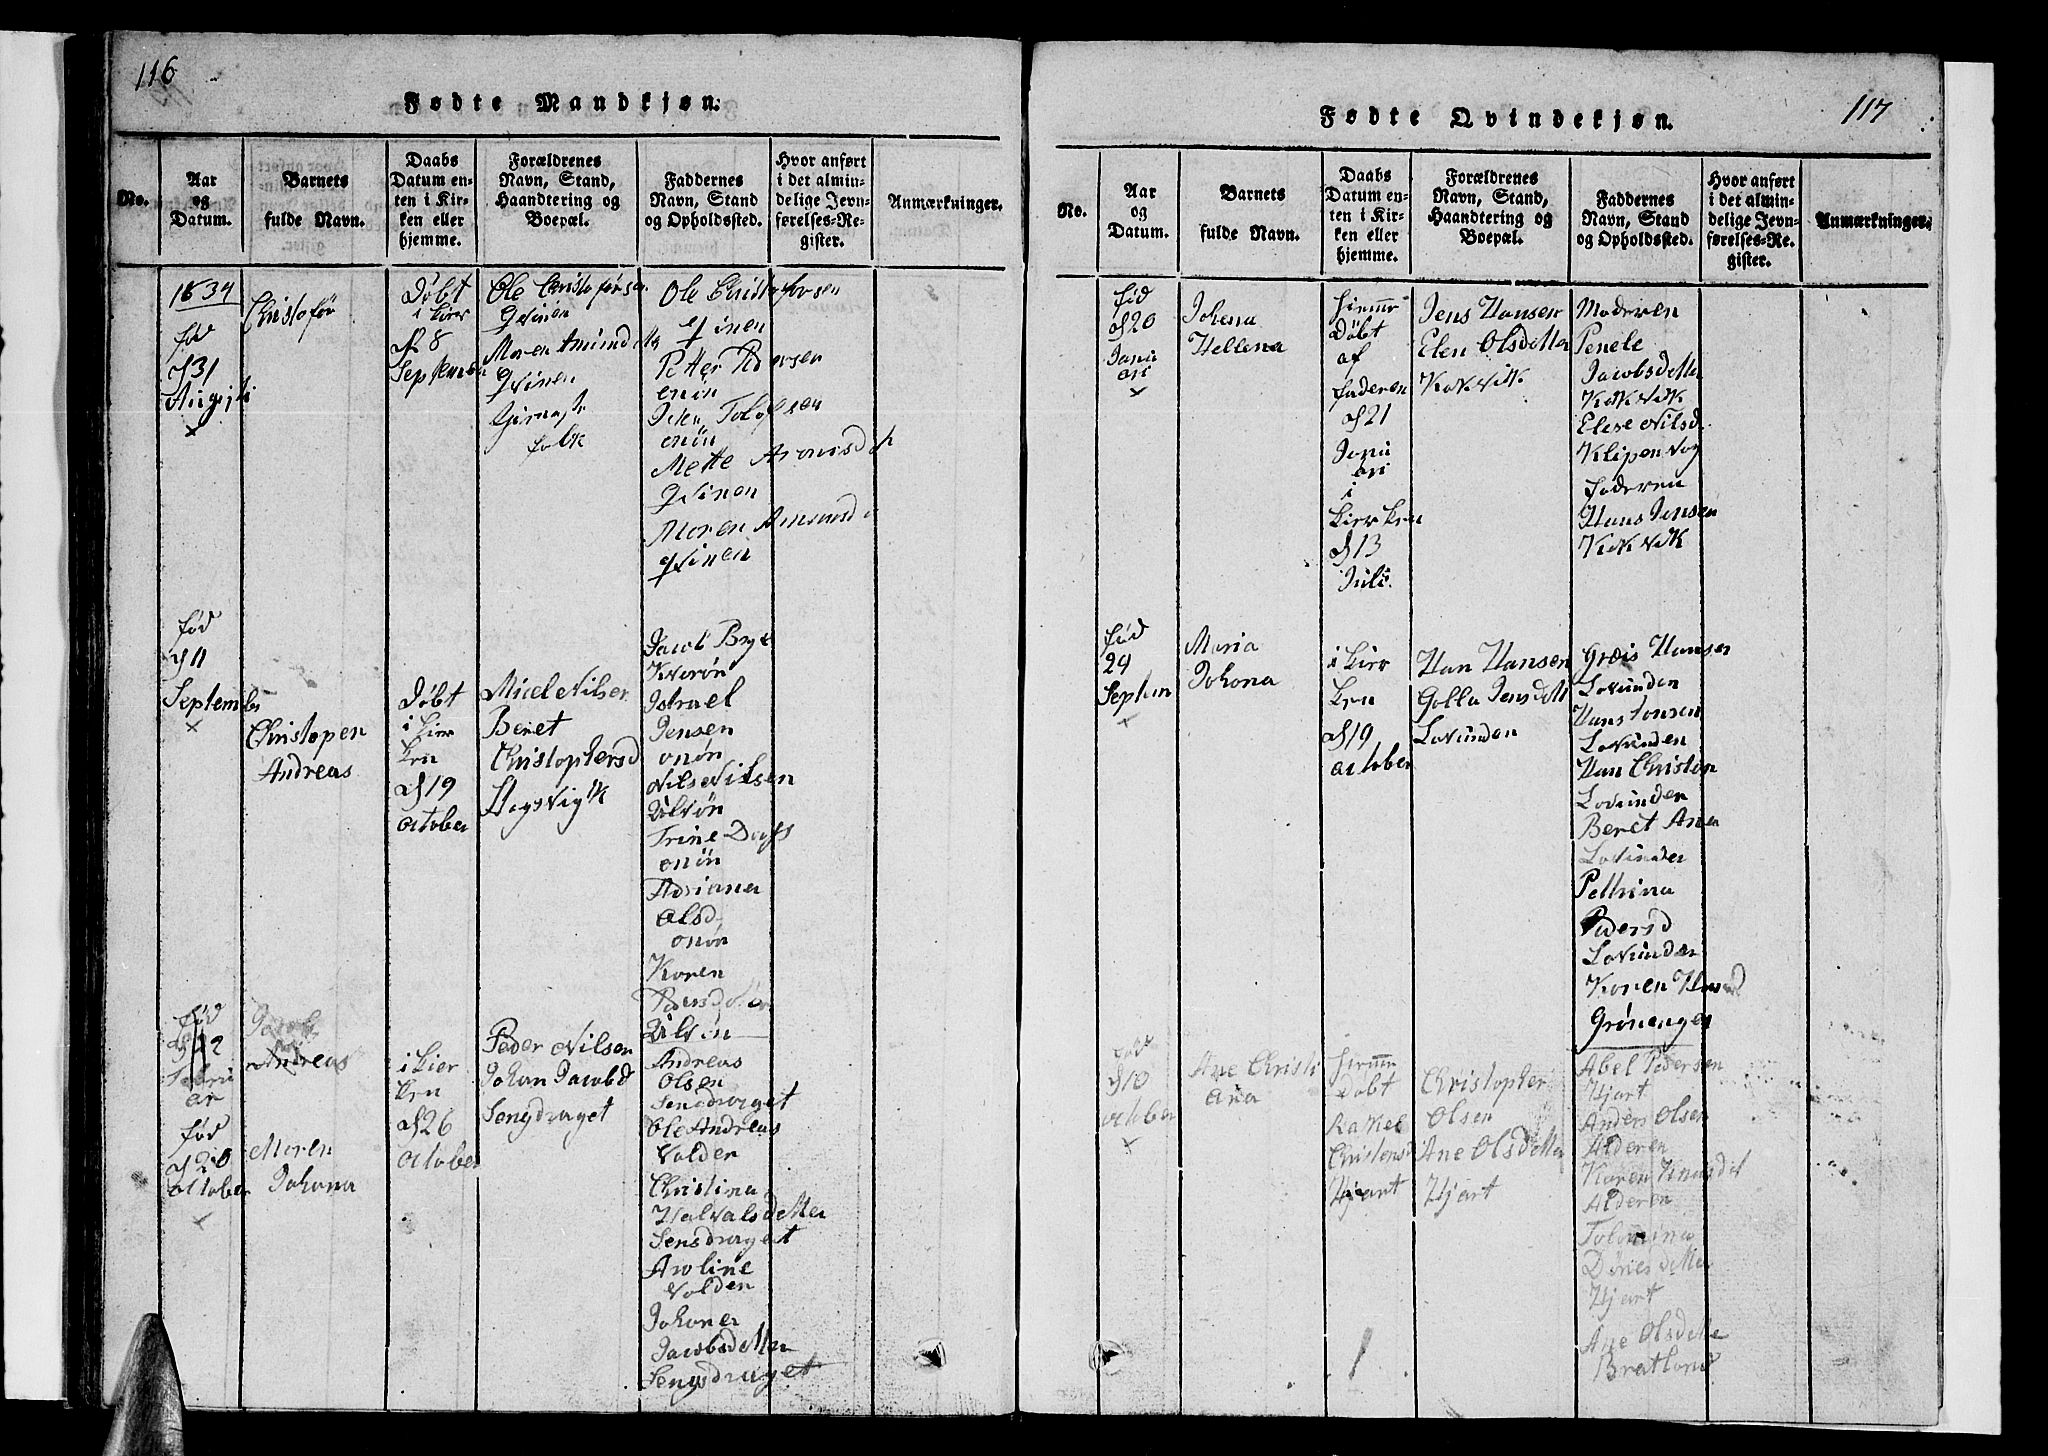 116
Fødte Mandkjøn.
No.
Aar
og
Datum.
Barnets
fulde Navn.
Daabs
Datum en-
ten i Kir-
ken eller
hjemme.
Forældrenes
Navn, Stand,
Haandtering og
Boepæl.
Faddernes
Navn, Stand
og Opholdssted.
Hvor anført
i det almin-
delige Jevn-
førelses-Re-
gister.
Anmærkninger.
1834
fød
d 31
Augusti
×
Christofør
Døbt
i Kirr
d 8
September
Ole Christofersen
Qvinen
Moren Amundatter
Qvinen
folk
Ole Christofersen
qvinen
Petter Pedersen
onøn
onøn
Mette
Qvinen
Moren Amundd
qvinen
fød
d 11
Septemb
×
Christopen
Andreas
Døbt
i Kier
ken
d 19
october
Micel Nilsen
Beret
Christophersd
Hogsvigk
Jacob
Kvarøn
Jsrael
Jensen
onøn
Nils Nilsen
Ulvøn
Trine
onøn
Adriana
olsd
onøn
Koren
Pedersdatter
Ulvøn
fød
d 12
Jacob
Andreas
fød
d 20
october
×
Moren
Johona
i Kier
ken
d 26
october
Peder Nilsen
Johan Jacobd
Sengdraget
Andreas
Olsen
Sensdraget
Ole Andreas
Volden
Christina
Halvalsdatter
Sensdraget
Aroline
Volden
Johoner
Jacobsdatter
Sengsdraget
117
Fødte Qvindekjøn.
No.
Aar
og
Datum.
Barnets
fulde Navn.
Daabs
Datum en-
ten i Kir-
ken eller
hjemme.
Forældrenes
Navn, Stand,
Haandtering og
Boepæl.
Faddernes
Navn, Stand
og Opholdssted.
Hvor anført
i det almin-
delige Jevn-
førelses-Re-
gister.
Anmærkninger.
fød
d 20
Janu
ari
×
Johena
Hellena
hiemme
Døbt
af
faderen
d 21
Janu
ari
i
Kierken
d 13
Juli.
Jens Hansen
Elen Olsdatter
Kokvik
Moderen
Penele
Jacobsdatter
Kokvik
Elese Nilsd
Klipenvog
faderen
Hans Jensen
Kokvik
fød
24
Septem
×
Maria
Johona
i Kier
ken
d 19
october
Han Hansen
Golla Jensdatt
Lovunden
Græis Hansen
Lovunden
Hans Jonsen
Lovunden
Han Christian
Lovunden
Beret Ana
Lovunden
Pethrina
Pedersd
Lovunden
Koren Hansd
Grønenget
fød
d 10
october
×
Ane Christi
ana
hiemme
Døbt
Rakel
Christensd
Hjart
Christopher
Olsen
Ane Olsdatter
Hjart
Abel Pedersen
Hjart
Anders Olsen
Alderen
Karen Knusdat
Alderen
Hjart
Ane Olsdatter
Bratland